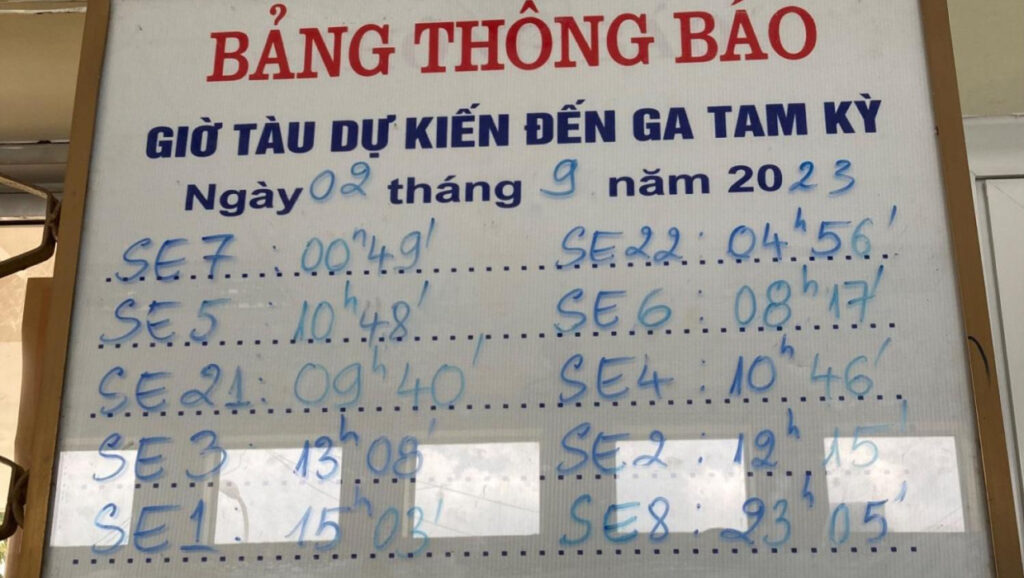 BẢNG THÔNG BÁO
GIỜ TÀU DỰ KIẾN ĐẾN GA TAM KỲ
Ngày 02 tháng 9 năm 2023
SE7 : 00h49' SE22: 04h56'
SE5 : 10h48' SE6 : 08h17'
SE21: 09h40' SE4 : 10h46'
SE3 : 13h08' SE2 : 12h15'
SE1 : 15h03' SE8 : 23h05'